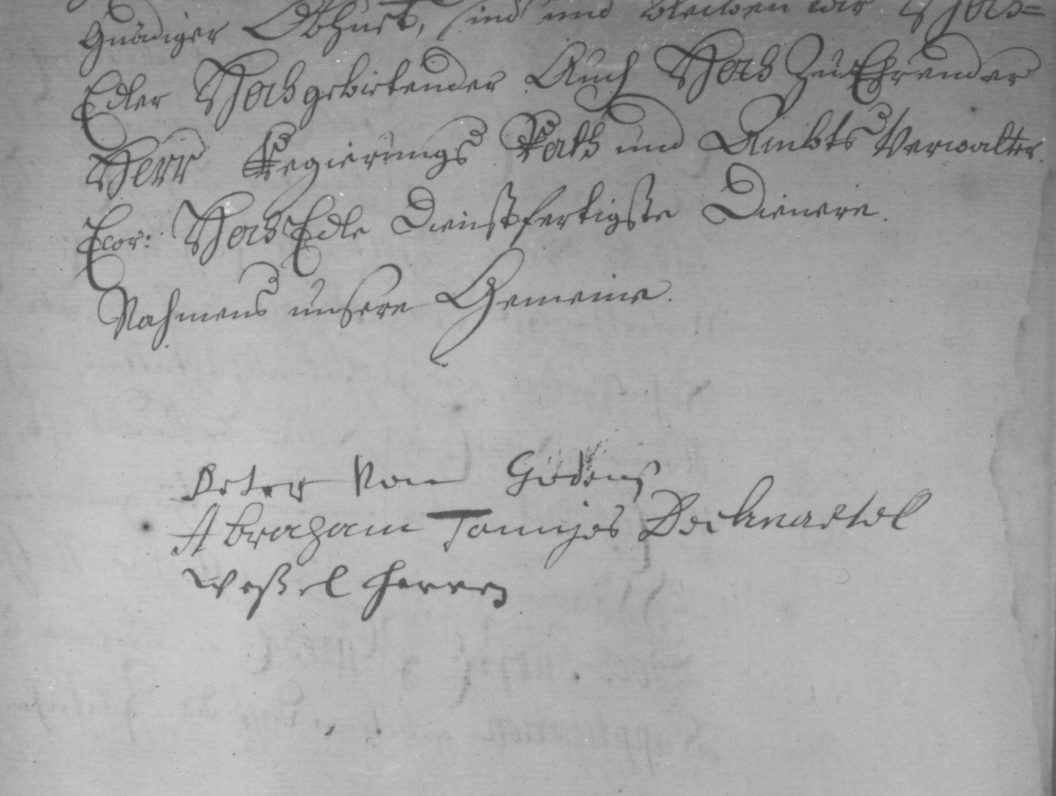 Gnädiger Obhuet, sind und bleiben wir Hoch=
Edler Hochgebietender Auch Hoch Zu Ehrender
Herr Regierungs Rath und Ambts Verwalter.
Ewr: HochEdle Dienstfertigste Dienere.
Nahmens unsere Gemeine.
Peter Von Gödens
Abraham Tonnjes
Weßel Herren